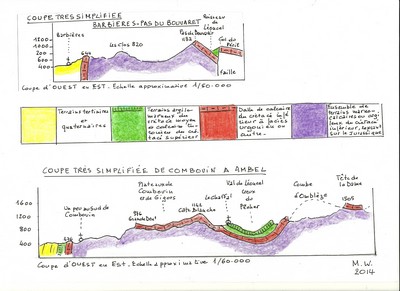 COUPE TRES SIMPLIFIEE
BARBIÈRES - PAS DU BOUVARET
Ruisseau
de
Léoncel
Barbières
Pas du Bouvaret
1183
Col du
Péril
Les Clos 820
640
1200
1000
800
600
400
Faille
Coupe d'OUEST en EST. Echelle approximative 1/50.000
Terrains tertiaires
et
quaternaires
Terrains argilo-
du
crétacé moyen
crétacé supérieur
Dalle de calcaire
du crétacé
inférieur à faciès
urgonien ou
autre.
Ensemble de
terrains marno-
calcaires
du crétacé
inférieur, reposant
sur le Jurassique
COUPE TRÈS SIMPLIFIÉE DE COMBOVIN A AMBEL
Plateaux de
Combovin
et de
Gigors
Val de Léoncel
Combe
d'Omblèze
Tête de
la Dame
1505
Un peu au Sud de
Combovin
1144
Côte Blanche
1600
1200
800
400
Coupe d'OUEST en EST. Echelle approximative 1/60.000
M.W.
2014